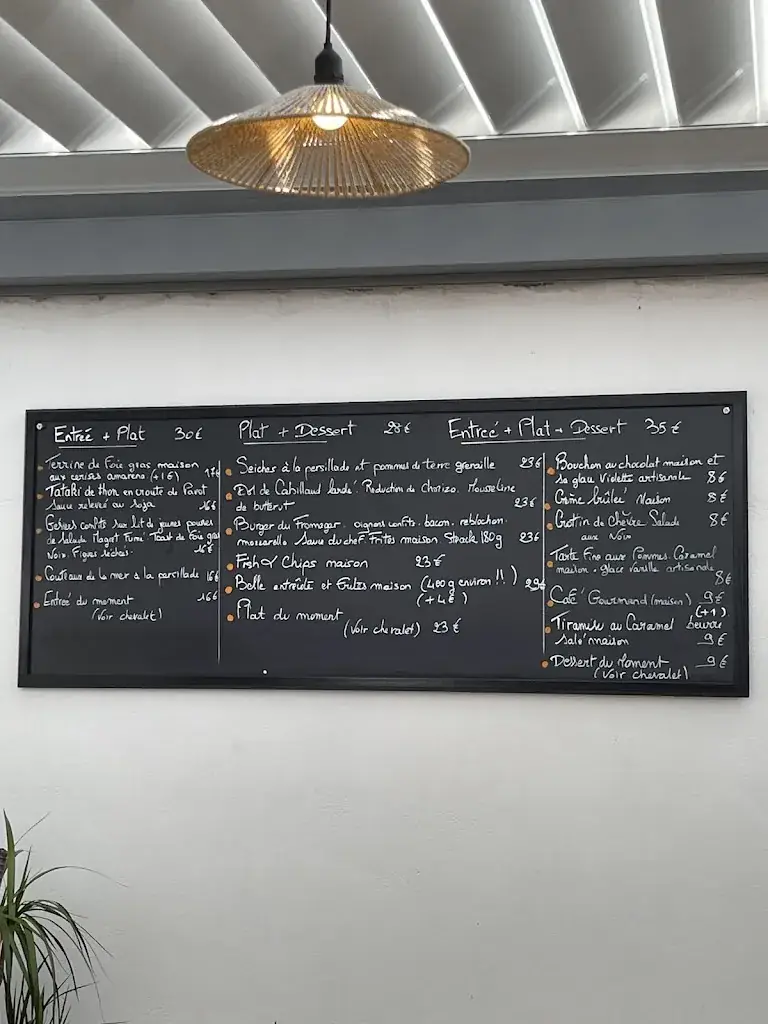 Entreé + Plat 30€
Plat + Dessert 28€
Entreé + Plat + Dessert 35€
Terrine de Foie gras maison
aux cerises amarena (+1€) 17€
Tataki de thon en croute de Pavot
Sauce relevée au Soja 16€
Gésiers confits sur lit de jeunes pousses
de salade Magret Fumé Toast de Foie gras
Noix. Figues séchées. 16€
Couteaux de la mer a la persillade 16€
Entreé du moment 16€
(Voir chevalet)
Seiches à la persillade et pommes de terre grenaille 23€
Dos de Cabillaud lardé. Réduction de Chorizo. Mousseline
de butternut 23€
Burger du Fromager. oignons confits. bacon. reblochon.
mozzarella Sauce du chef. Frites maison Steack 180g 23€
Fish & Chips maison 23€
Bavette entière et Frites maison (400g environ !!) 29€
(+4€)
Plat du moment
(Voir chevalet) 23€
Bouchon au chocolat maison et
sa glace Violette artisanale 8€
Crème brûlée Maison 8€
Crottin de Chèvre Salade 8€
aux Noix
Tarte Fine aux Pommes. Caramel
maison. glace vanille artisanale
8€
Café Gourmand (maison) 9€
(+1)
Tiramisu au Caramel beurre
salé maison 9€
Dessert du Moment 9€
(Voir chevalet)